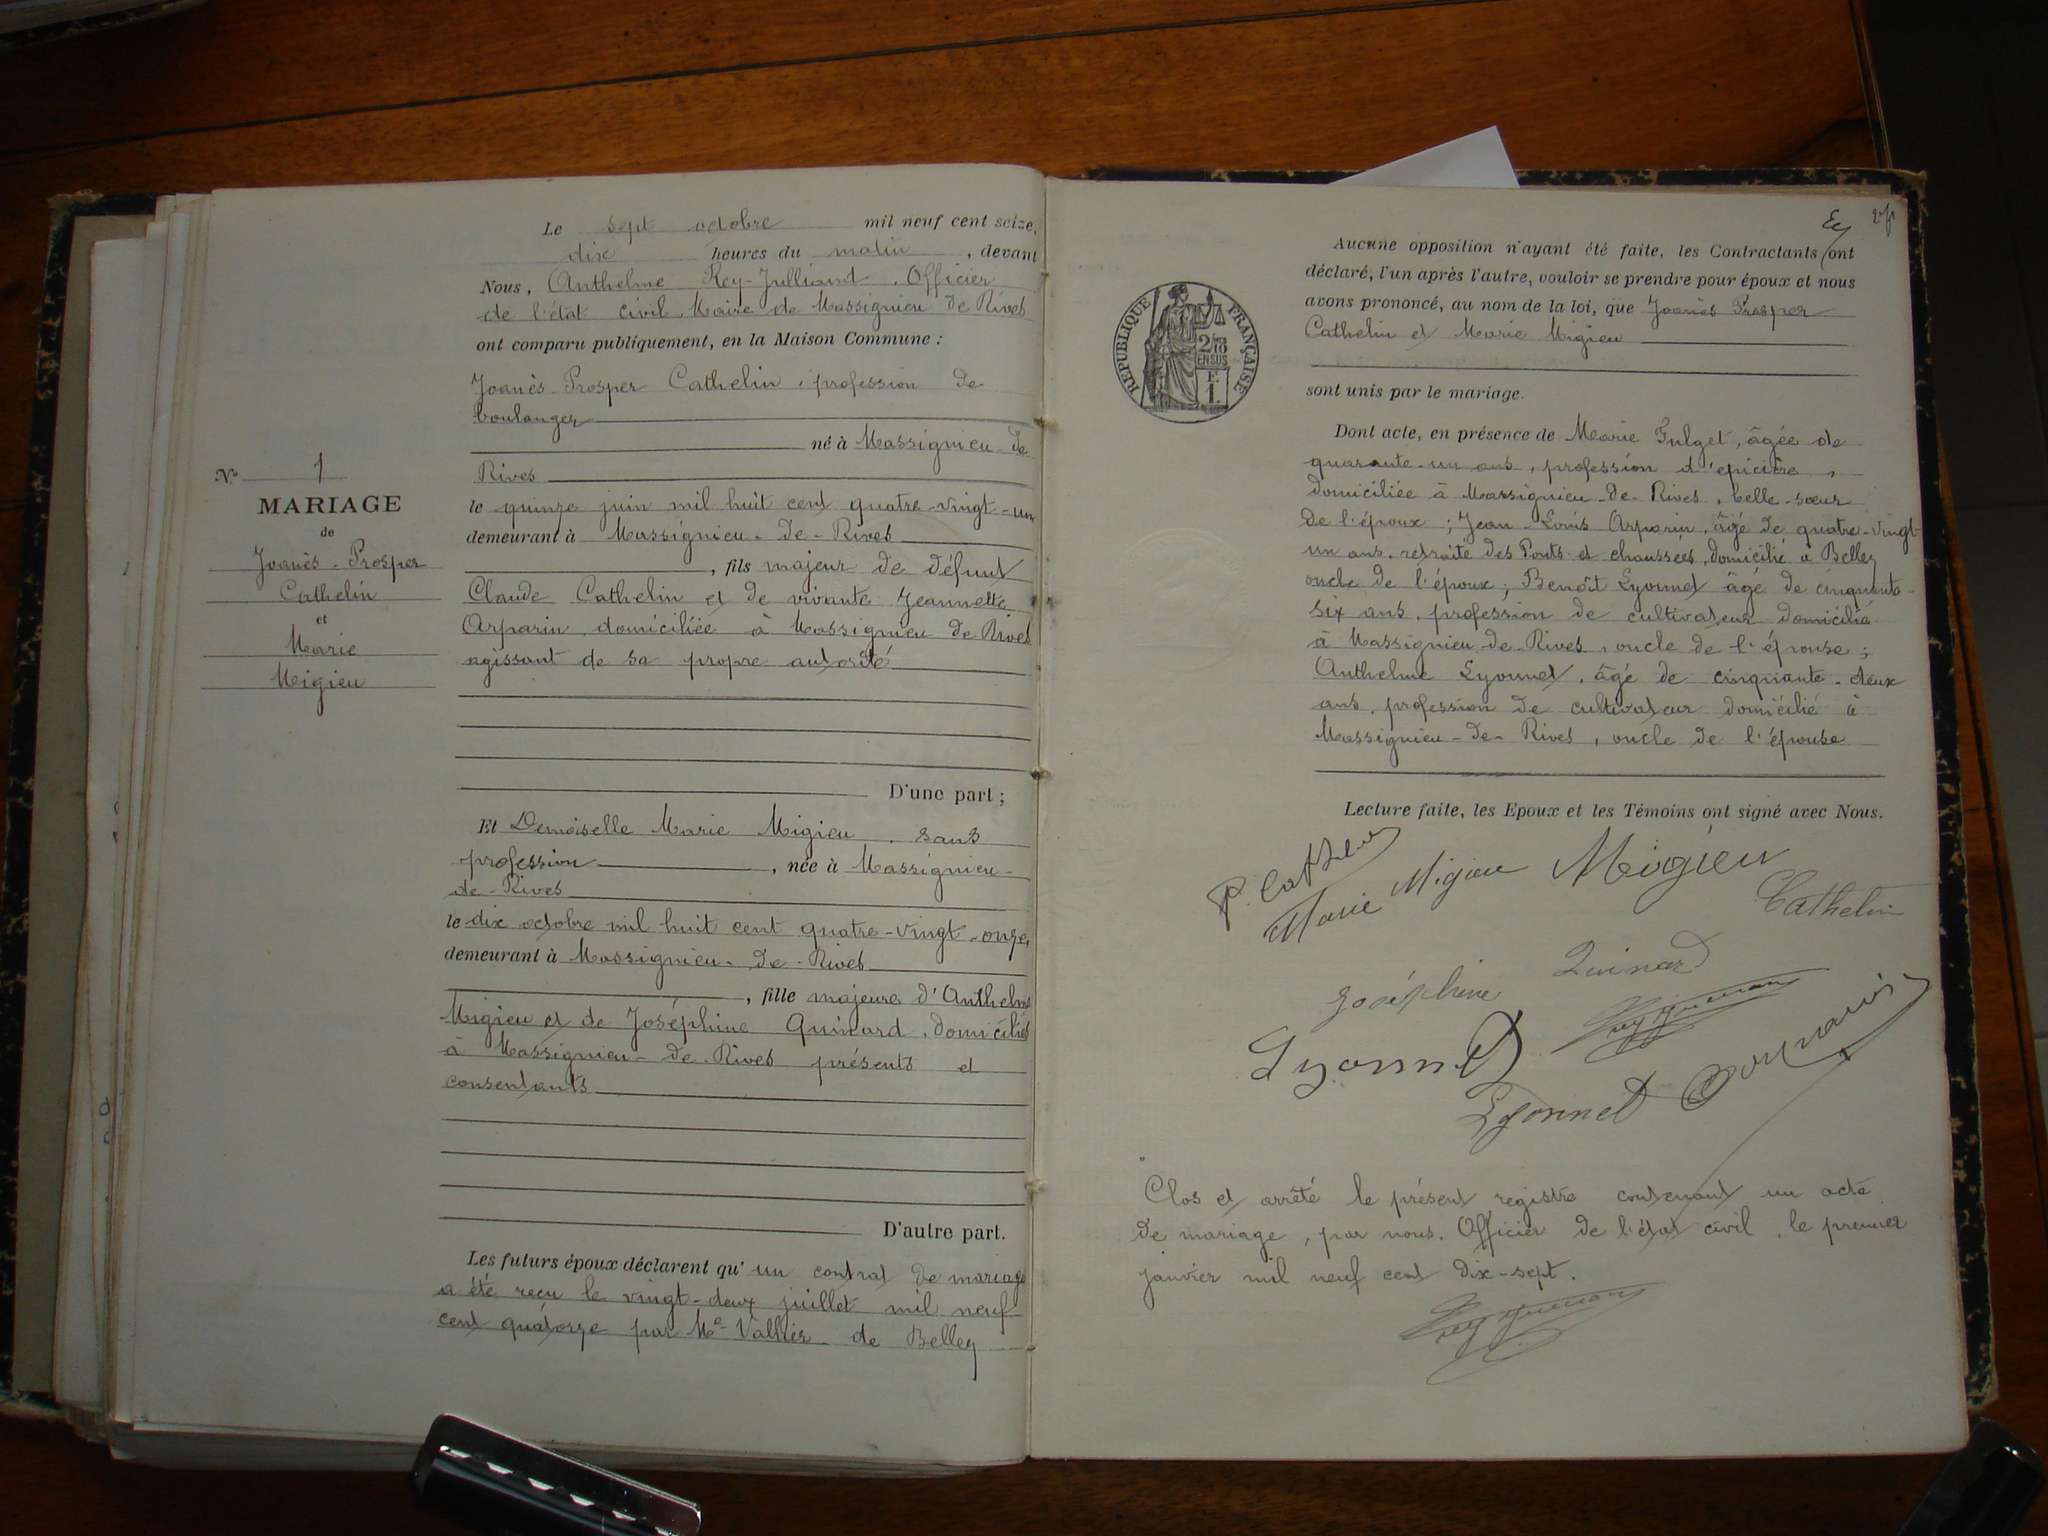 Le sept octobre mil neuf cent seize,
dix heures du matin, devant
Nous, Anthelme Rey-Julliand, Officier
de l'état civil, Maire de Massignieu de Rives
ont comparu publiquement, en la Maison Commune :
Joanès-Prosper Cathelin, profession de
boulanger
né à Massignieu-de
Rives
le quinze juin mil huit cent quatre-vingt-un
demeurant à Massignieu-de-Rives
, fils majeur de défunt
Claude Cathelin et de vivante Jeannette
Arparin domiciliée à Massignieu de Rives
agissant de sa propre autorité
D'une part ;
N° 1
MARIAGE
de
Joanès-Prosper
Cathelin
et
Marie
Migieu
Et Demoiselle Marie Migieu, sans
profession, née à Massignieu-
de-Rives
le dix octobre mil huit cent quatre-vingt-onze,
demeurant à Massignieu-de-Rives
, fille majeure d'Anthelme
Migieu et de Joséphine Quinard, domiciliés
à Massignieu-de-Rives présents et
consentants
D'autre part.
Les futurs époux déclarent qu'un contrat de mariage
a été reçu le vingt-deux juillet mil neuf
cent quatorze par Me Vallier de Belley
REPUBLIQUE FRANÇAISE
2/10
EN SUS
F.
1.
Aucune opposition n'ayant été faite, les Contractants ont
déclaré, l'un après l'autre, vouloir se prendre pour époux et nous
avons prononcé, au nom de la loi, que Joanès Prosper
Cathelin et Marie Migieu
sont unis par le mariage.
Dont acte, en présence de Marie Fulget, âgée de
quarante-un ans, profession d'épicière,
domiciliée à Massignieu-de-Rives, belle-sœur
de l'époux ; Jean-Louis Arparin, âgé de quatre-vingt-
un ans, retraité des Ponts et chaussées, domicilié à Belley
oncle de l'époux ; Benoît Lyonnet âgé de cinquante-
six ans, profession de cultivateur domicilié
à Massignieu-de-Rives, oncle de l'épouse ;
Anthelme Lyonnet, âgé de cinquante-deux
ans, profession de cultivateur domicilié à
Massignieu-de-Rives, oncle de l'épouse
Lecture faite, les Epoux et les Témoins ont signé avec Nous.
P. Cathelin
Marie Migieu
Migieu
Cathelin
Joséphine Quinard
Lyonnet
Lyonnet
Clos et arrêté le présent registre contenant un acte
de mariage, par nous, Officier de l'état civil, le premier
janvier mil neuf cent dix-sept.